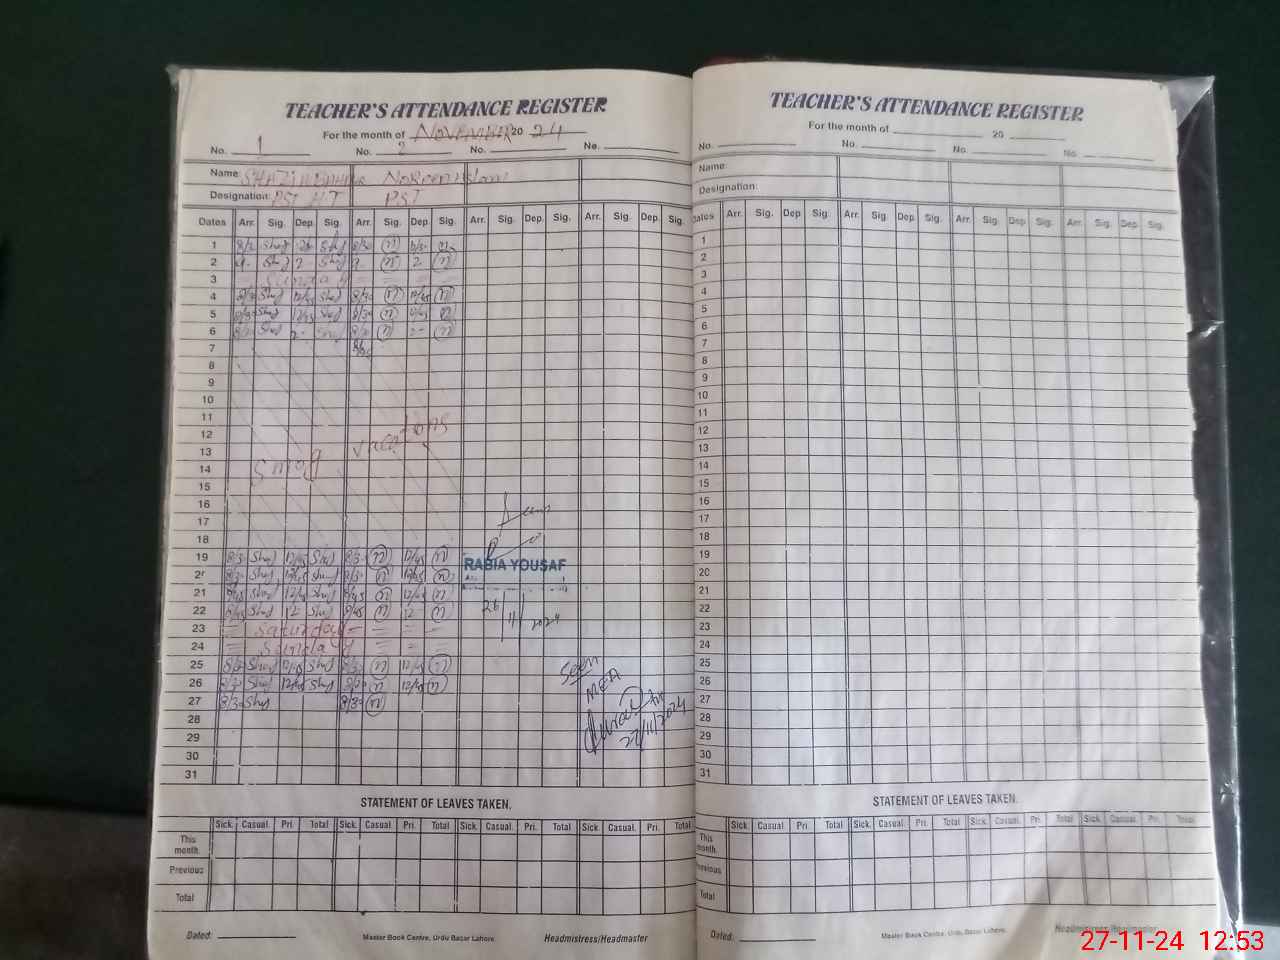 TEACHER'S ATTENDANCE REGISTER
For the month of NOVEMBER 20 24
No. 1 No. 2 No. No.
Name: Noreen Islam
Designation: PST H.T PST
Dates Arr. Sig. Dep. Sig. Arr. Sig. Dep. Sig. Arr. Sig. Dep. Sig. Arr. Sig. Dep. Sig.
1 8/30 n n
2 9 2 9 n 2 n
3 Sunday
4 8/30 12/45 8/30 n 12/45 n
5 8/30 12/45 8/30 n 12/45 n
6 8/30 2 8/30 n 2 n
7
8
9
10
11
12 vacations
13
14 Smog
15
16
17
18
19 8/30 12/45 8/30 n 12/45 n
RABIA YOUSAF
8/30 12/45 8/30 n 12/45 n
21 8/45 12/45 8/45 n 12/45 n
22 8/45 12 8/45 n 12 n
26/11/2024
23 = Saturday = = = =
24 = Sunday = = =
25 8/30 12/45 8/30 n 12/45 n
26 8/30 12/45 8/30 n 12/45 n
27 8/30 8/30 n
28
29
30
31
Seen
MEA
27/11/2024
STATEMENT OF LEAVES TAKEN.
Sick. Casual. Pri. Total Sick. Casual. Pri. Total Sick. Casual. Pri. Total Sick. Casual. Pri. Total
This month.
Previous
Total
Dated:
Master Book Centre, Urdu Bazar Lahore.
Headmistress/Headmaster
TEACHER'S ATTENDANCE REGISTER
For the month of 20
No. No. No. No.
Name:
Designation:
Dates Arr. Sig. Dep. Sig. Arr. Sig. Dep. Sig. Arr. Sig. Dep. Sig. Arr. Sig. Dep. Sig.
1
2
3
4
5
6
7
8
9
10
11
12
13
14
15
16
17
18
19
20
21
22
23
24
25
26
27
28
29
30
31
STATEMENT OF LEAVES TAKEN.
Sick. Casual Pri. Total Sick. Casual. Pri. Total Sick. Casual. Pri. Total Sick. Casual. Pri. Total
This month.
Previous
Total
Dated:
Master Book Centre, Urdu Bazar Lahore.
Headmistress/Headmaster
27-11-24 12:53